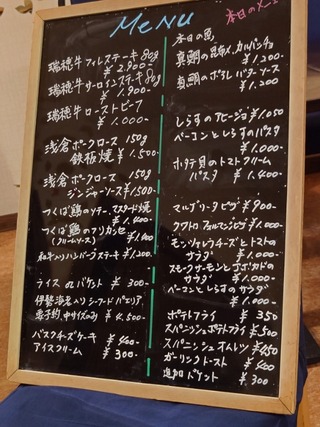 MENU
本日のメニュー
瑞穂牛フィレステーキ 80g
¥2.900-
瑞穂牛サーロインステーキ 80g
¥1.900-
瑞穂牛ローストビーフ
¥1.000-
浅倉ポークロース 150g
鉄板焼 ¥1.500-
浅倉ポークロース 150g
ジンジャーソース ¥1,500-
つくば鶏のソテー、マスタード焼
¥1.400-
つくば鶏のフリカッセ
(クリームソース) ¥1.400
和牛入りハンバーグステーキ
¥1.200-
ライス or バケット ¥300-
伊勢海老入りシーフードパエリア、
要予約 中サイズのみ ¥4.500-
バスクチーズケーキ ¥400-
アイスクリーム ¥300-
本日の魚
真鯛の昆布〆カルパッチョ
¥1.200-
真鯛のポワレ バターソース
¥1.200
しらすのアヒージョ ¥1.050
ベーコンとしらすのパスタ
¥1.000-
ホタテ貝のトマトクリーム
パスタ ¥1.400
マルゲリータピザ ¥900-
クワトロフォルマッジピザ ¥1.000-
モッツァレラチーズとトマトの
サラダ ¥1.000-
スモークサーモンとアボカドの
サラダ ¥1.000-
ベーコンとしらすのサラダ
¥1.000-
ポテトフライ ¥350
スパニッシュポテトフライ ¥500
スパニッシュオムレツ ¥450
ガーリックトースト ¥400
追加バケット ¥300